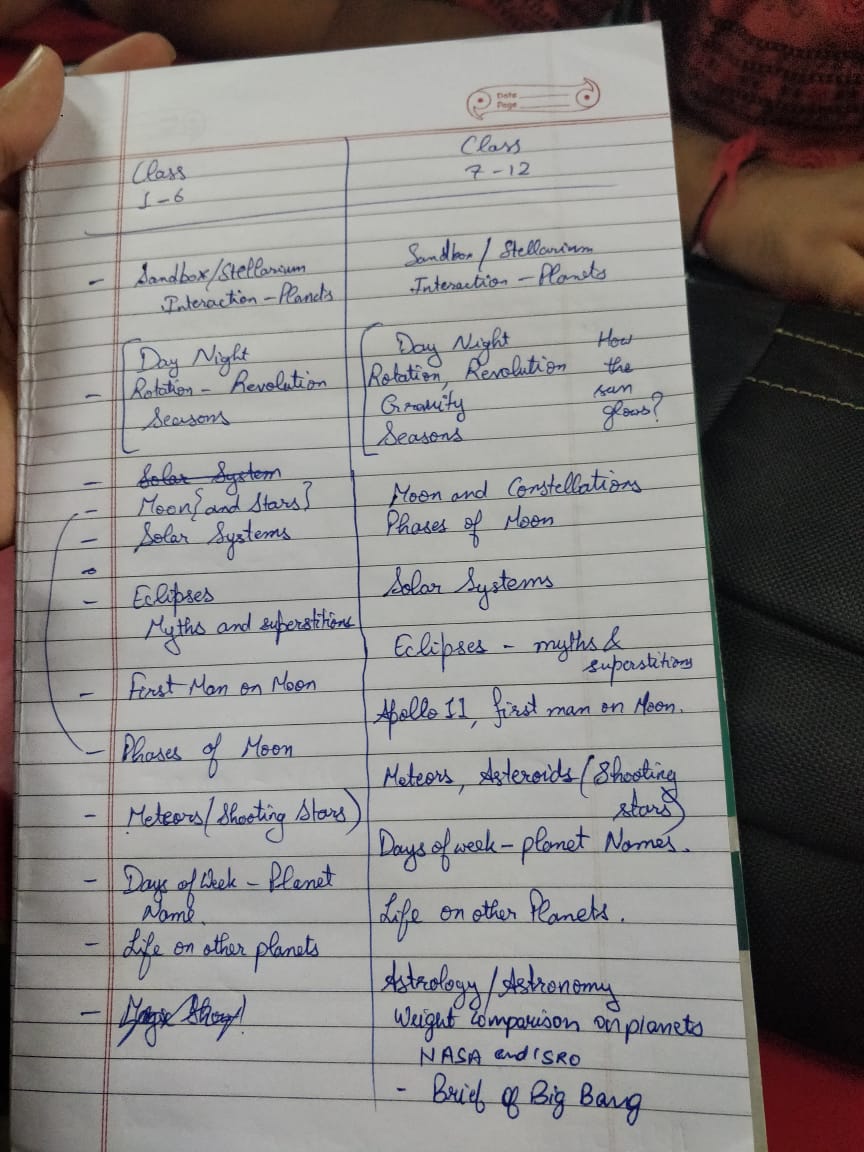 Date
Page
Class
1-6
- Sandbox/Stellarium
Interaction - Planets
Day Night
- Rotation - Revolution
Seasons
- Solar System
- Moon {and Stars}
- Solar Systems
- Eclipses
Myths and superstitions
- First Man on Moon
- Phases of Moon
- Meteors/(Shooting Stars)
- Days of Week - Planet
Name
- Life on other planets
-
Class
7-12
Sandbox / Stellarium
Interaction - Planets
Day Night
Rotation, Revolution
Gravity
Seasons
How
the
sun
glows?
Moon and Constellations
Phases of Moon
Solar Systems
Eclipses - myths &
superstitions
Apollo 11, first man on Moon.
Meteors, Asteroids (Shooting
stars)
Days of week - planet Names.
Life on other Planets.
Astrology/Astronomy
Weight Comparison on planets
NASA and ISRO
- Brief of Big Bang